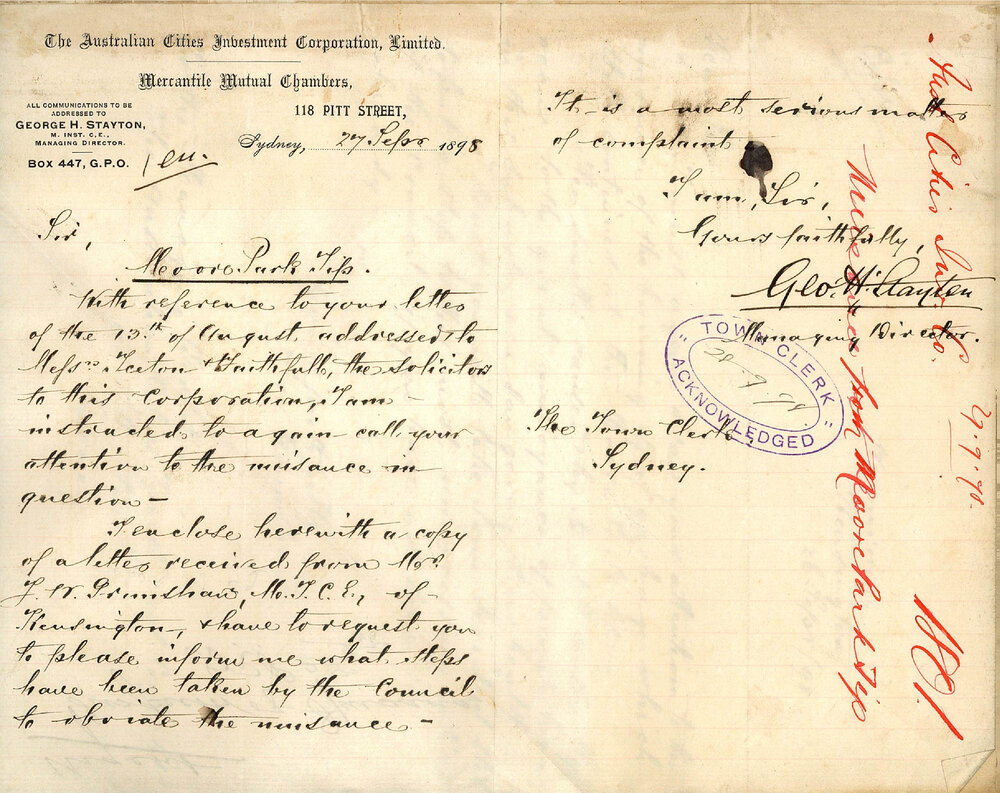 The Australian Cities Investment Corporation, Limited.
Mercantile Mutual Chambers,
118 PITT STREET,
ALL COMMUNICATIONS TO BE
ADDRESSED TO
GEORGE H. STAYTON,
M. INST. C.E.,
MANAGING DIRECTOR.
BOX 447, G.P.O.
Sydney, 27 Sepr 1898
Sir,
Moore Park Tip.
With reference to your letter
of the 13th of August addressed to
Messrs & Faithfull, the solicitors
to this Corporation, I am
instructed to again call your
attention to the nuisance in
question —
I enclose herewith a copy
of a letter received from Mr
J. W. Grimshaw, M.I.C.E., of
Kensington, & have to request you
to please inform me what steps
have been taken by the Council
to obviate the nuisance —
It is a most serious matter
of complaint
I am, Sir,
Yours faithfully,
Geo. H. Stayton
Managing Director.
"TOWN CLERK"
28.9.98
ACKNOWLEDGED
The Town Clerk,
Sydney.
Aust Cities Inv Co.
27.9.98
Nuisance from Moore Park Tip